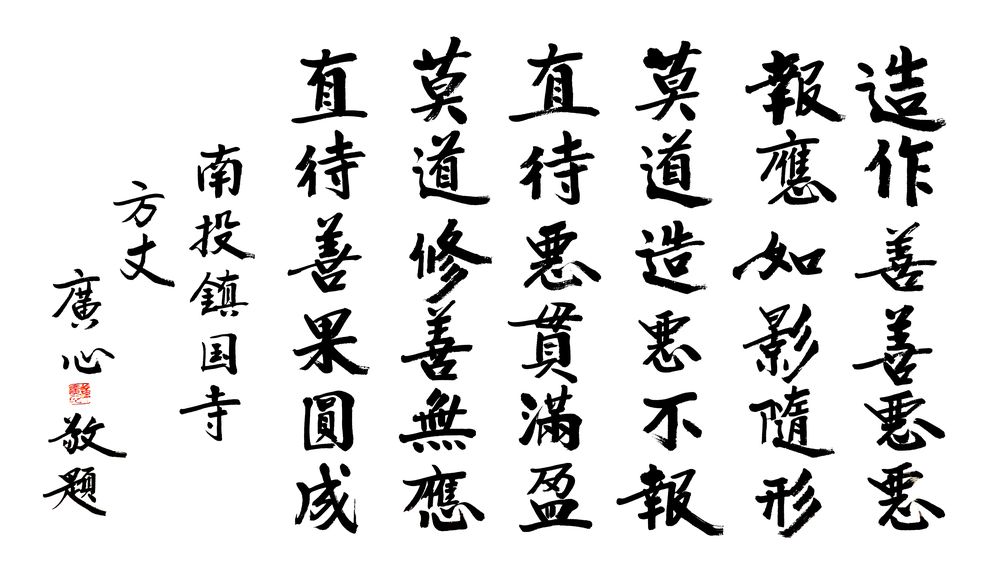 造作善善悪悪
報應如影隨形
莫道造悪不報
直待悪貫滿盈
莫道修善無應
直待善果圓成
南投鎮国寺
方丈
廣心
敬題